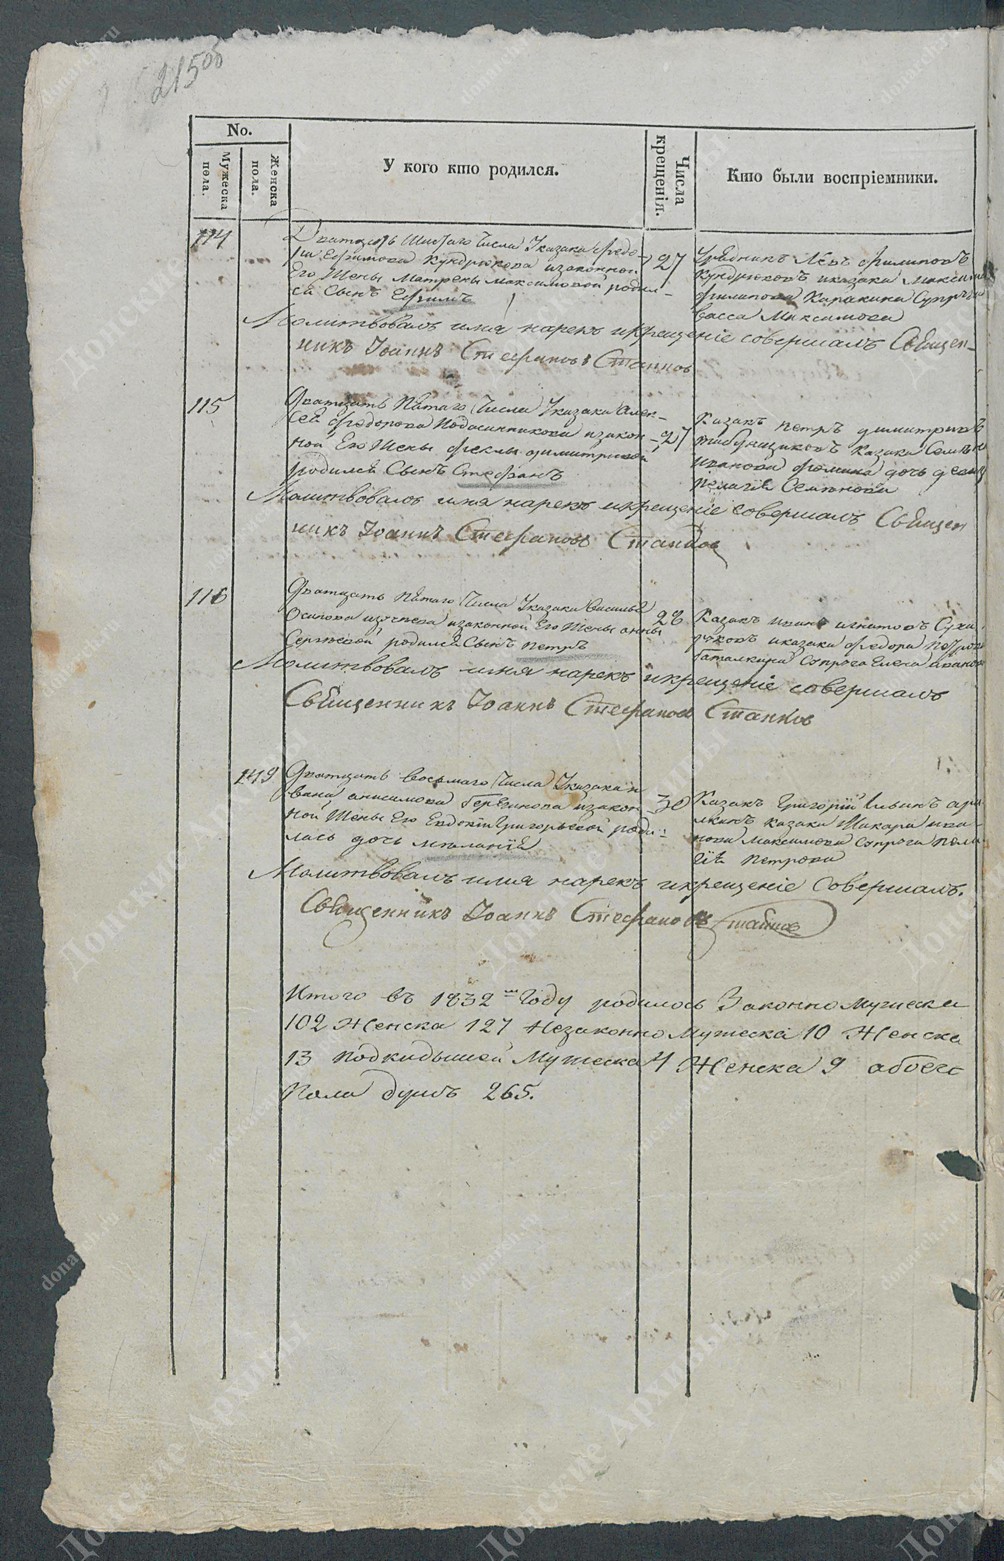 215об
No.
Мужеска пола.
Женска пола.
У кого кто родился.
Числа крещенія.
Кто были воспріемники.
114
Дватцать Шестаго Числа Указака Федо-
ра Ефимова Кундрюкова изаконной
Его Жены Матрены Максимовой родил-
ся Сынъ Ефимъ
27
Урядникъ Левъ Филиповъ
Кундрюковъ иказака Максима
Филипова Каракина Супруга
Васса Максимова
Молитвовалъ имя нарекъ икрещеніе совершалъ Священ-
никъ Іоаннъ Стефановъ
115
Дватцать Пятаго Числа Указака Алек-
сея Федорова изакон-
ной Его Жены Феклы Димитриевой
родился Сынъ Стефанъ
27
Казакъ Петръ Димитриевъ
Казака
Иванова Фомина дочь девица
Пелагия Семенова
Молитвовалъ имя нарекъ икрещеніе совершалъ Священ
никъ Іоаннъ Стефановъ
116
Дватцать Пятаго Числа Указака Василья
Осипова изаконной Его Жены Анны
Сергѣевой родился Сынъ Петръ
28
Казакъ Иванъ Игнатовъ Суха-
руковъ иказака Федора Петрова
Супруга Елена
Молитвовалъ имя нарекъ икрещеніе совершалъ
Священникъ Іоаннъ Стефановъ
149
Дватцать Восьмаго Числа Указака И
вана Анисимова изакон-
ной Жены Его Евдокіи Григорьевой роди-
лась дочь Меланія
30
Казакъ Григорій Ильинъ
Казака Макара Ива-
нова Максимова Супруга Пела
гія Петрова
Молитвовалъ имя нарекъ икрещеніе Совершалъ.
Священникъ Іоаннъ Стефановъ
Итого въ 1832 Году родилось Законно Мужеска
102 Женска 127 Незаконно Мужеска 10 Женска
13 Подкидышей Мужеска 4 Женска 9 обоего
Пола душъ 265.
Донские Архивы
donarch.ru